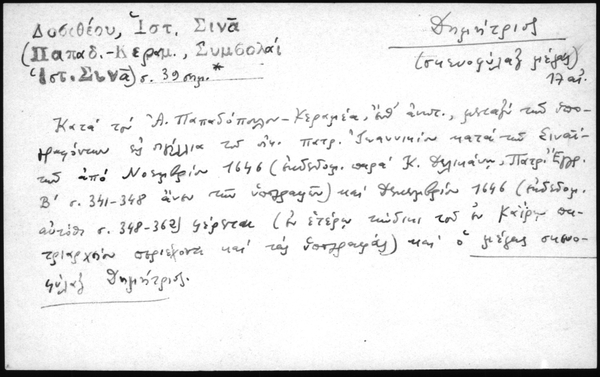 Δοσιθέου, Ἱστ. Σινᾶ
(Παπαδ.-Κεραμ., Συμβολαί
Ἱστ. Σινᾶ) σ. 39 σημ.*
Δημήτριος
(σκευοφύλαξ μέγας)
17 αἰ.
Κατὰ τὸν Ἀ. Παπαδόπουλον-Κεραμέα, ἔνθ' ἀνωτ., μεταξὺ τῶν ὑπο-
γραψάντων εἰς τοῦ οἰκ. πατρ. Ἰωαννικίου κατὰ τῶν Σιναϊ-
τῶν ἀπὸ Νοεμβρίου 1646 (ἐκδεδομ. παρὰ Κ. Δελικάνῃ, Πατρ. Ἔγγρ.
Β' σ. 341-348 ἄνευ τῶν ὑπογραφῶν) καὶ Δεκεμβρίου 1646 (ἐκδεδομ.
αὐτόθι σ. 348-362) φέρεται (ἐν ἑτέρῳ κώδικι τοῦ ἐν Καΐρῳ πα-
τριαρχείου περιέχοντι καὶ τὰς ὑπογραφάς) καὶ ὁ μέγας σκευο-
φύλαξ Δημήτριος.